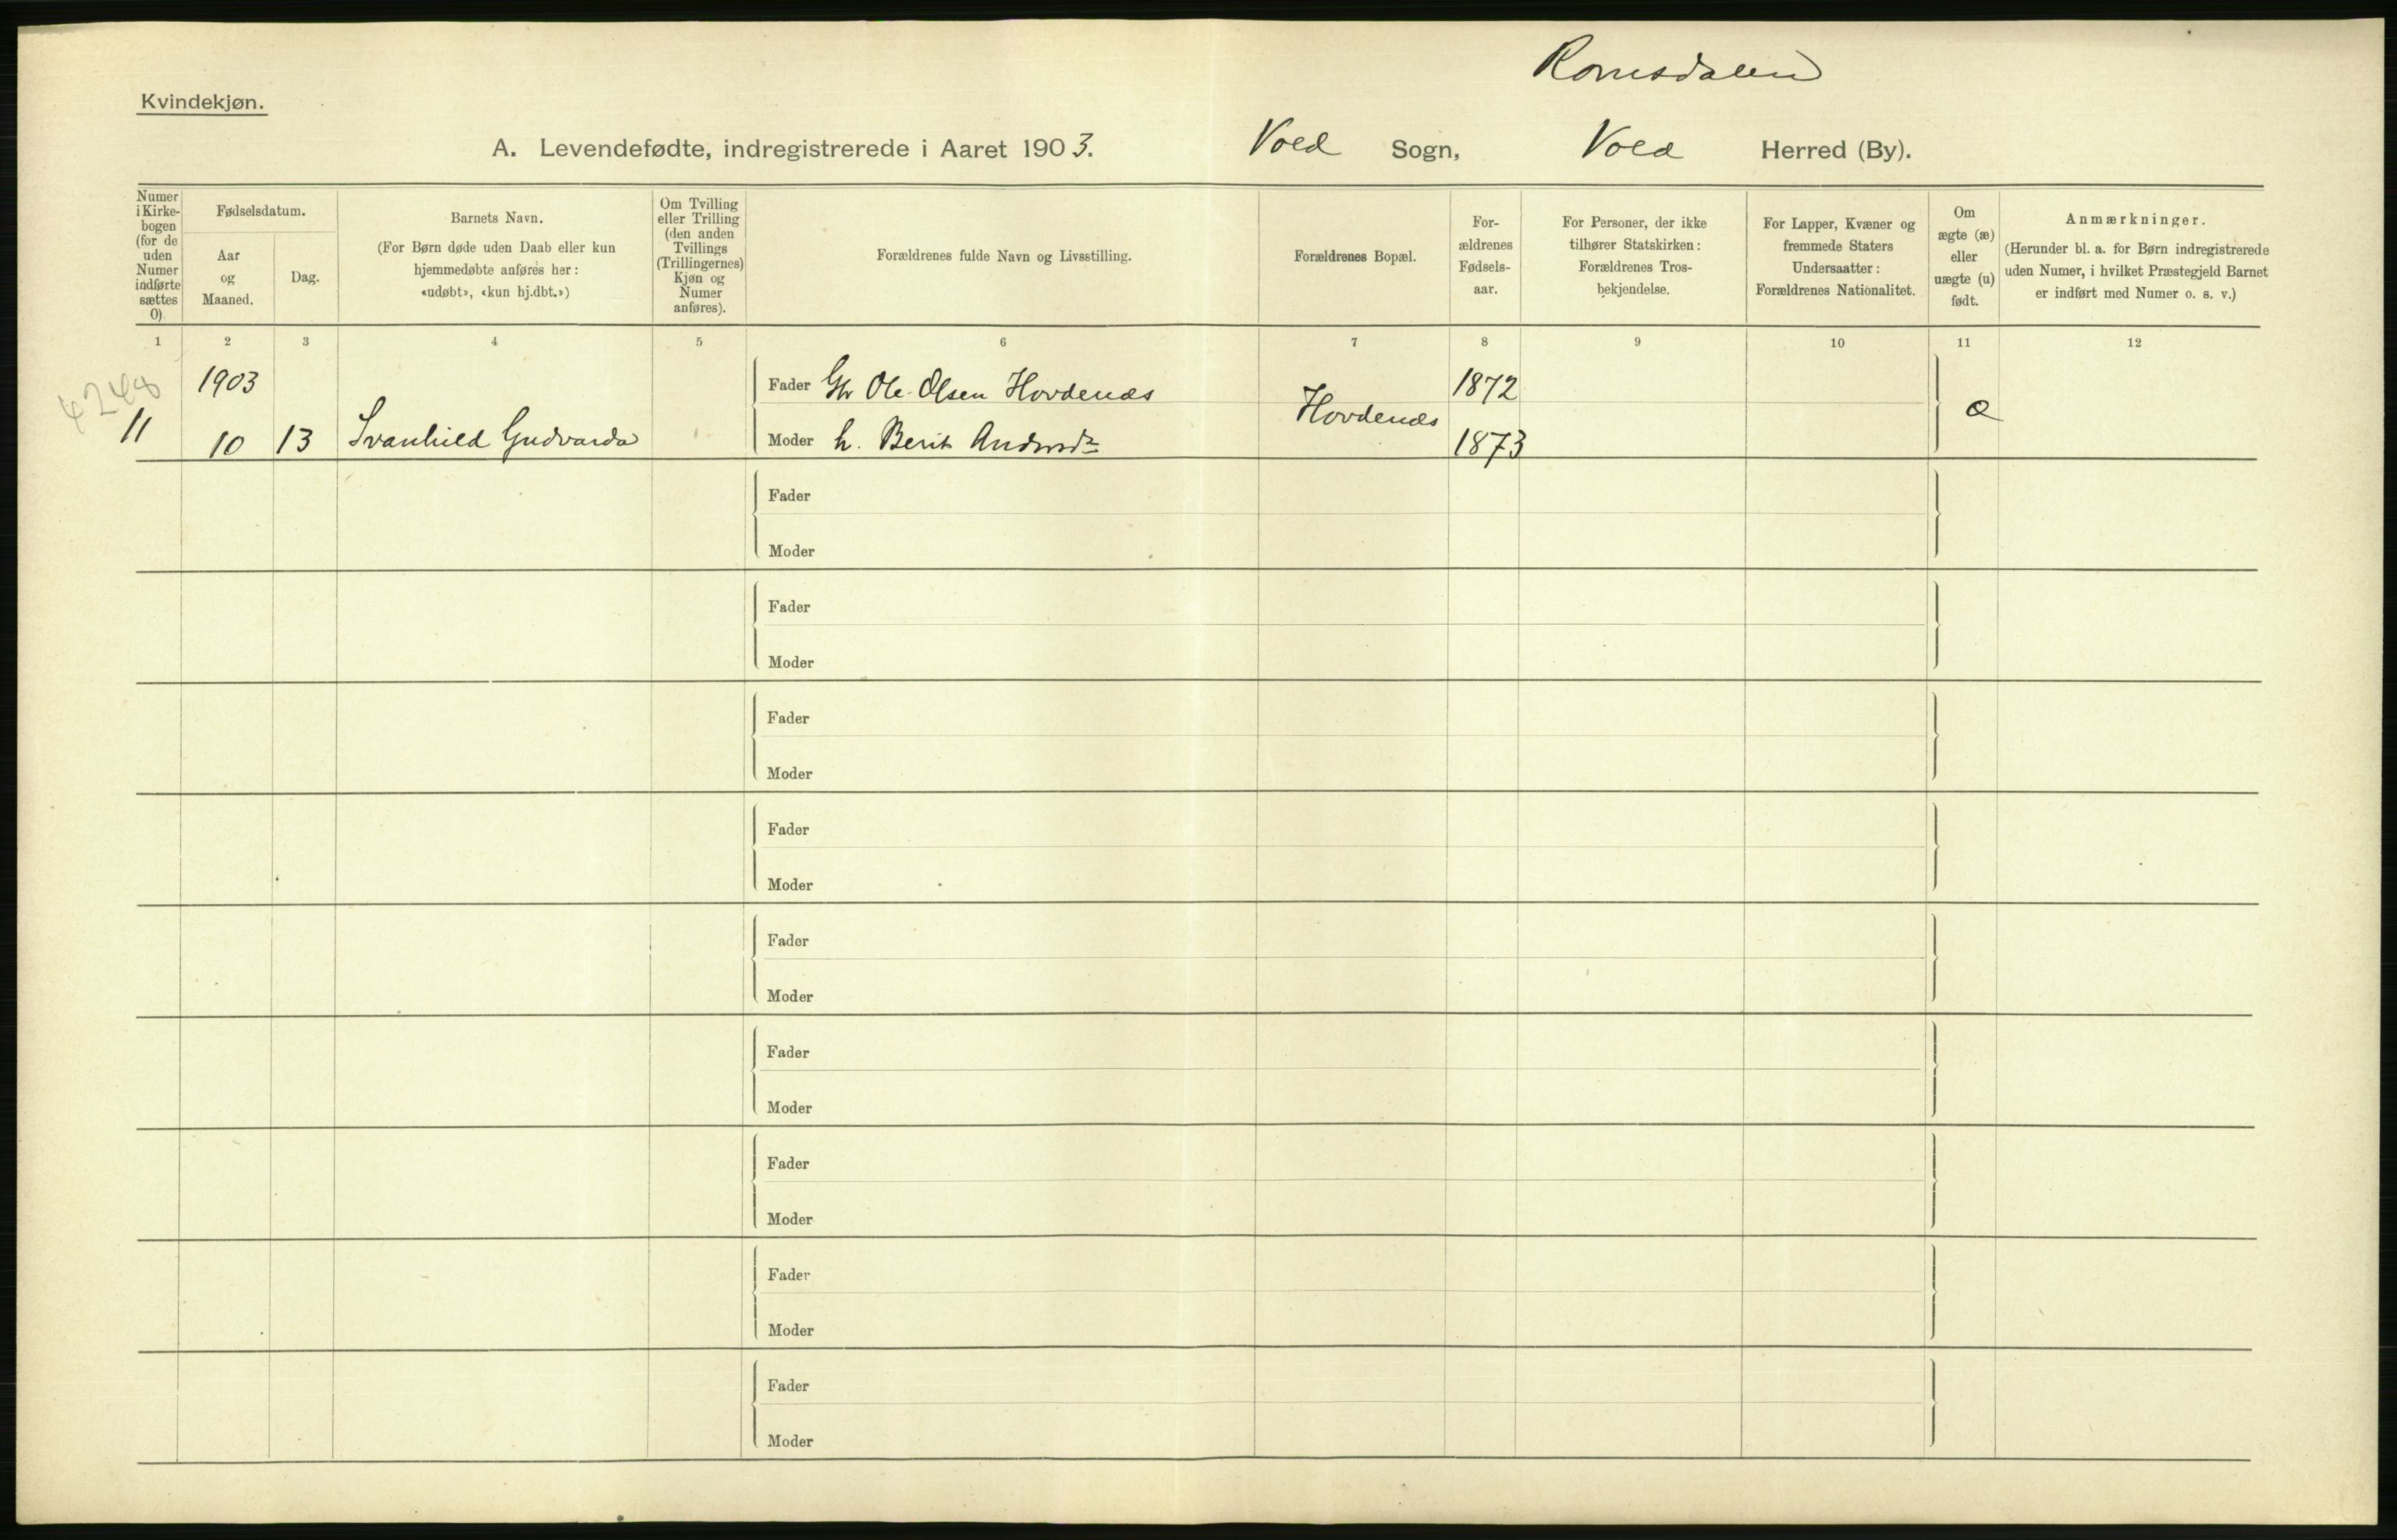 Romsdalen
Kvindekjøn.
A. Levendefødte, indregistrerede i Aaret 1903. Vold Sogn, Vold Herred (By).
Numer i Kirke-bogen (for de uden Numer indførte sættes 0).
Fødselsdatum.
Aar og Maaned.
Dag.
Barnets Navn.
(For Børn døde uden Daab eller kun hjemmedøbte anføres her: «udøbt», «kun hj.dbt.»)
Om Tvilling eller Trilling (den anden Tvillings (Trillingernes) Kjøn og Numer anføres).
Forældrenes fulde Navn og Livsstilling.
Forældrenes Bopæl.
For-ældrenes Fødsels-aar.
For Personer, der ikke tilhører Statskirken: Forældrenes Tros-bekjendelse.
For Lapper, Kvæner og fremmede Staters Undersaatter: Forældrenes Nationalitet.
Om ægte (æ) eller uægte (u) født.
Anmærkninger.
(Herunder bl. a. for Børn indregistrerede uden Numer, i hvilket Præstegjeld Barnet er indført med Numer o. s. v.)
1 2 3 4 5 6 7 8 9 10 11 12
4248
1903 Fader Gbr Ole Olsen Hovdenæs Hovdenæs 1872 æ
11 10 13 Svanhild Gudvarda Moder h. Berit Andersdr 1873
Fader
Moder
Fader
Moder
Fader
Moder
Fader
Moder
Fader
Moder
Fader
Moder
Fader
Moder
Fader
Moder
Fader
Moder